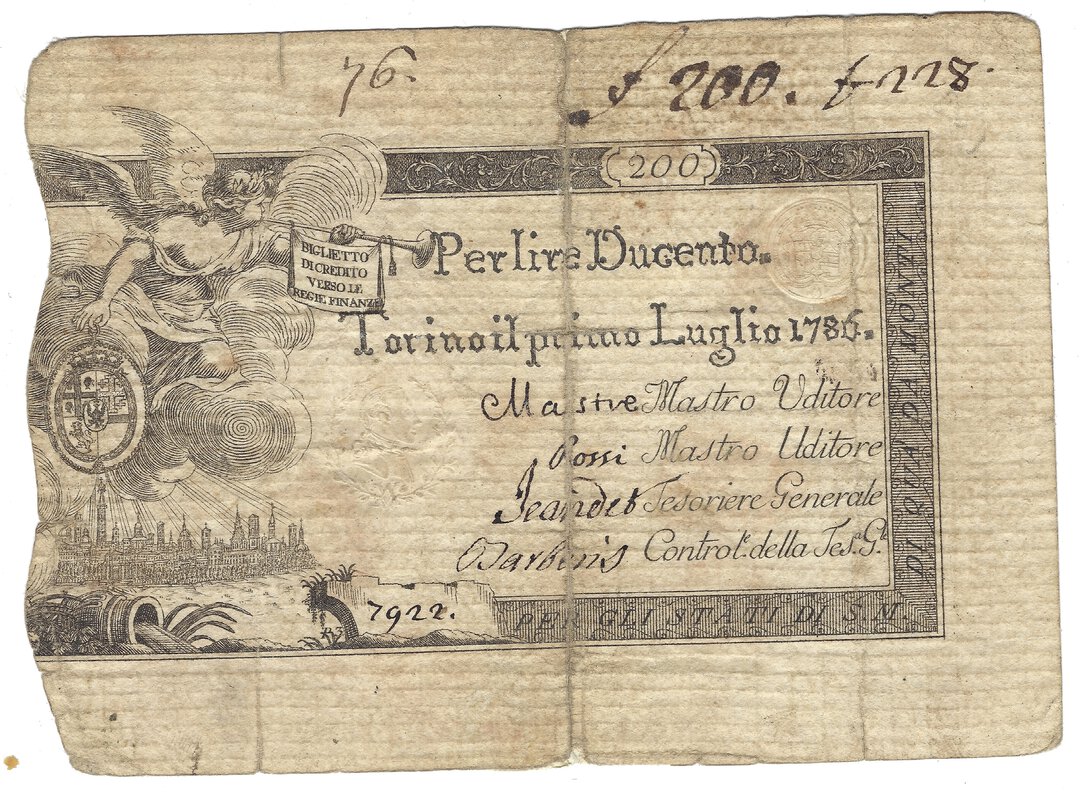 76. f 200. f 228.
200
BIGLIETTO
DI CREDITO
VERSO LE
REGIE FINANZE
Per lire Ducento.
Torino il primo Luglio 1786.
Maistre Mastro Uditore
Rossi Mastro Uditore
Jeandet Tesoriere Generale
Barberis Control.e della Tes.a G.l
7922.
PER GLI STATI DI S.M.